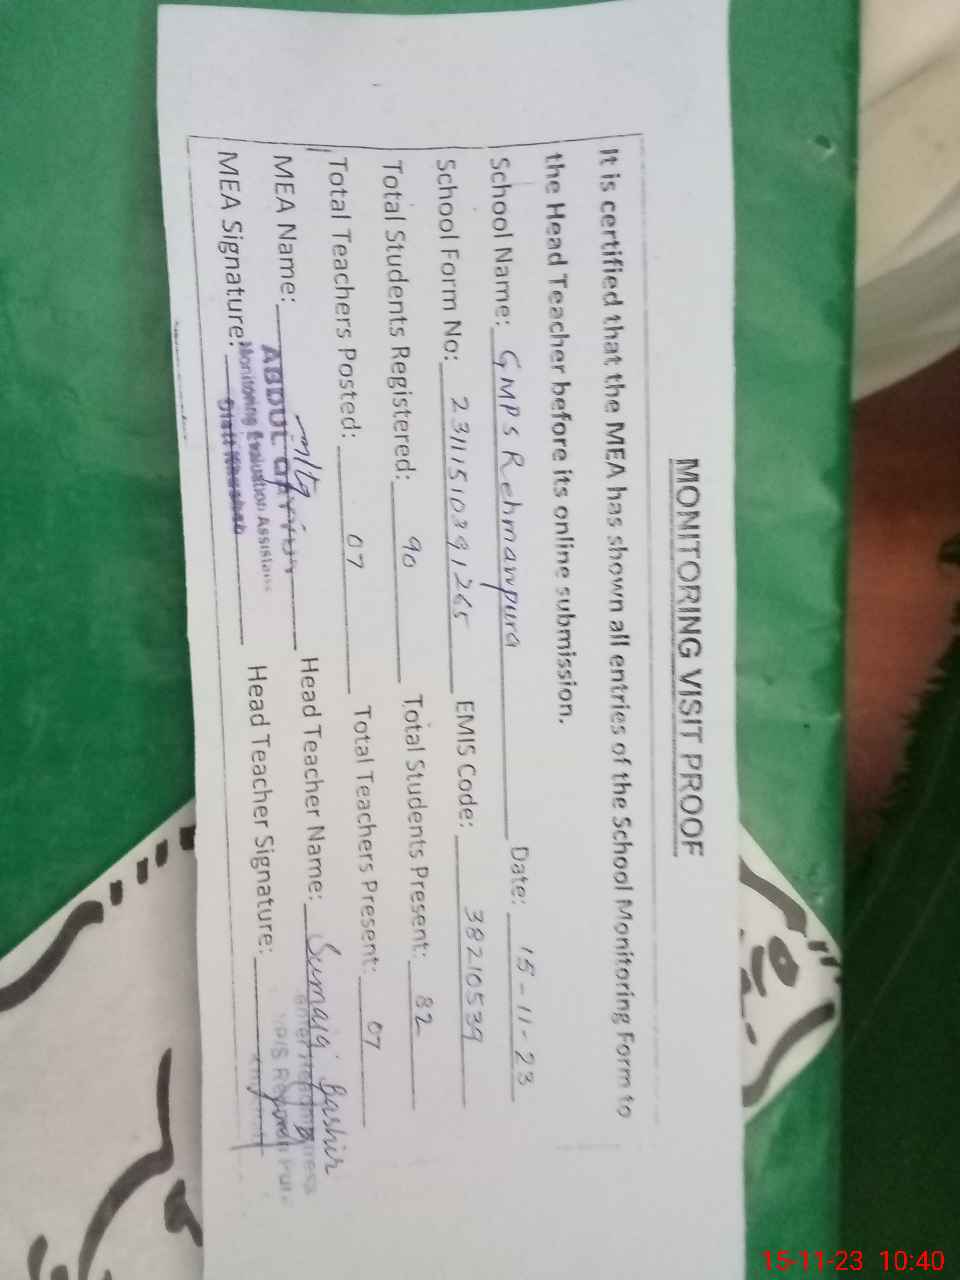 MONITORING VISIT PROOF
It is certified that the MEA has shown all entries of the School Monitoring Form to
the Head Teacher before its online submission.
School Name: GMPS Rehmanpura Date: 15-11-23
School Form No: 23111510391265 EMIS Code: 38210539
Total Students Registered: 90 Total Students Present: 82
Total Teachers Posted: 07 Total Teachers Present: 07
MEA Name: ABDUL QAYYUM Head Teacher Name: Sumaia Bashir
Monitoring Evaluation Assistant
MEA Signature: Distt Khushab Head Teacher Signature:
15-11-23 10:40